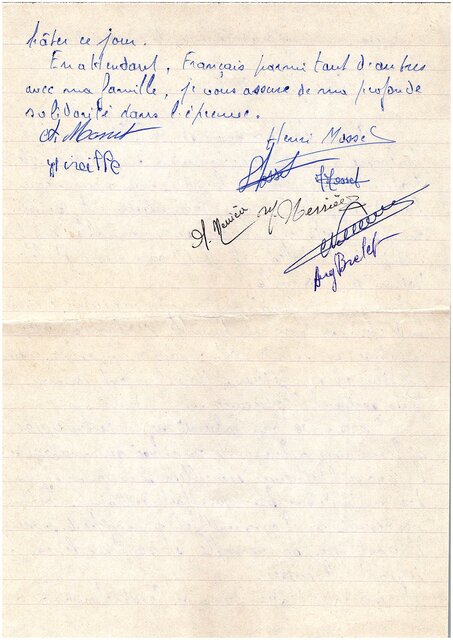 hâter ce jour.
En attendant, Français parmi tant d'autres
avec ma famille, je vous assure de ma profonde
solidarité dans l'épreuve.
Henri Mosset
Mireille
Mosset
A. Mercier M. Mercier
Aug Bretet